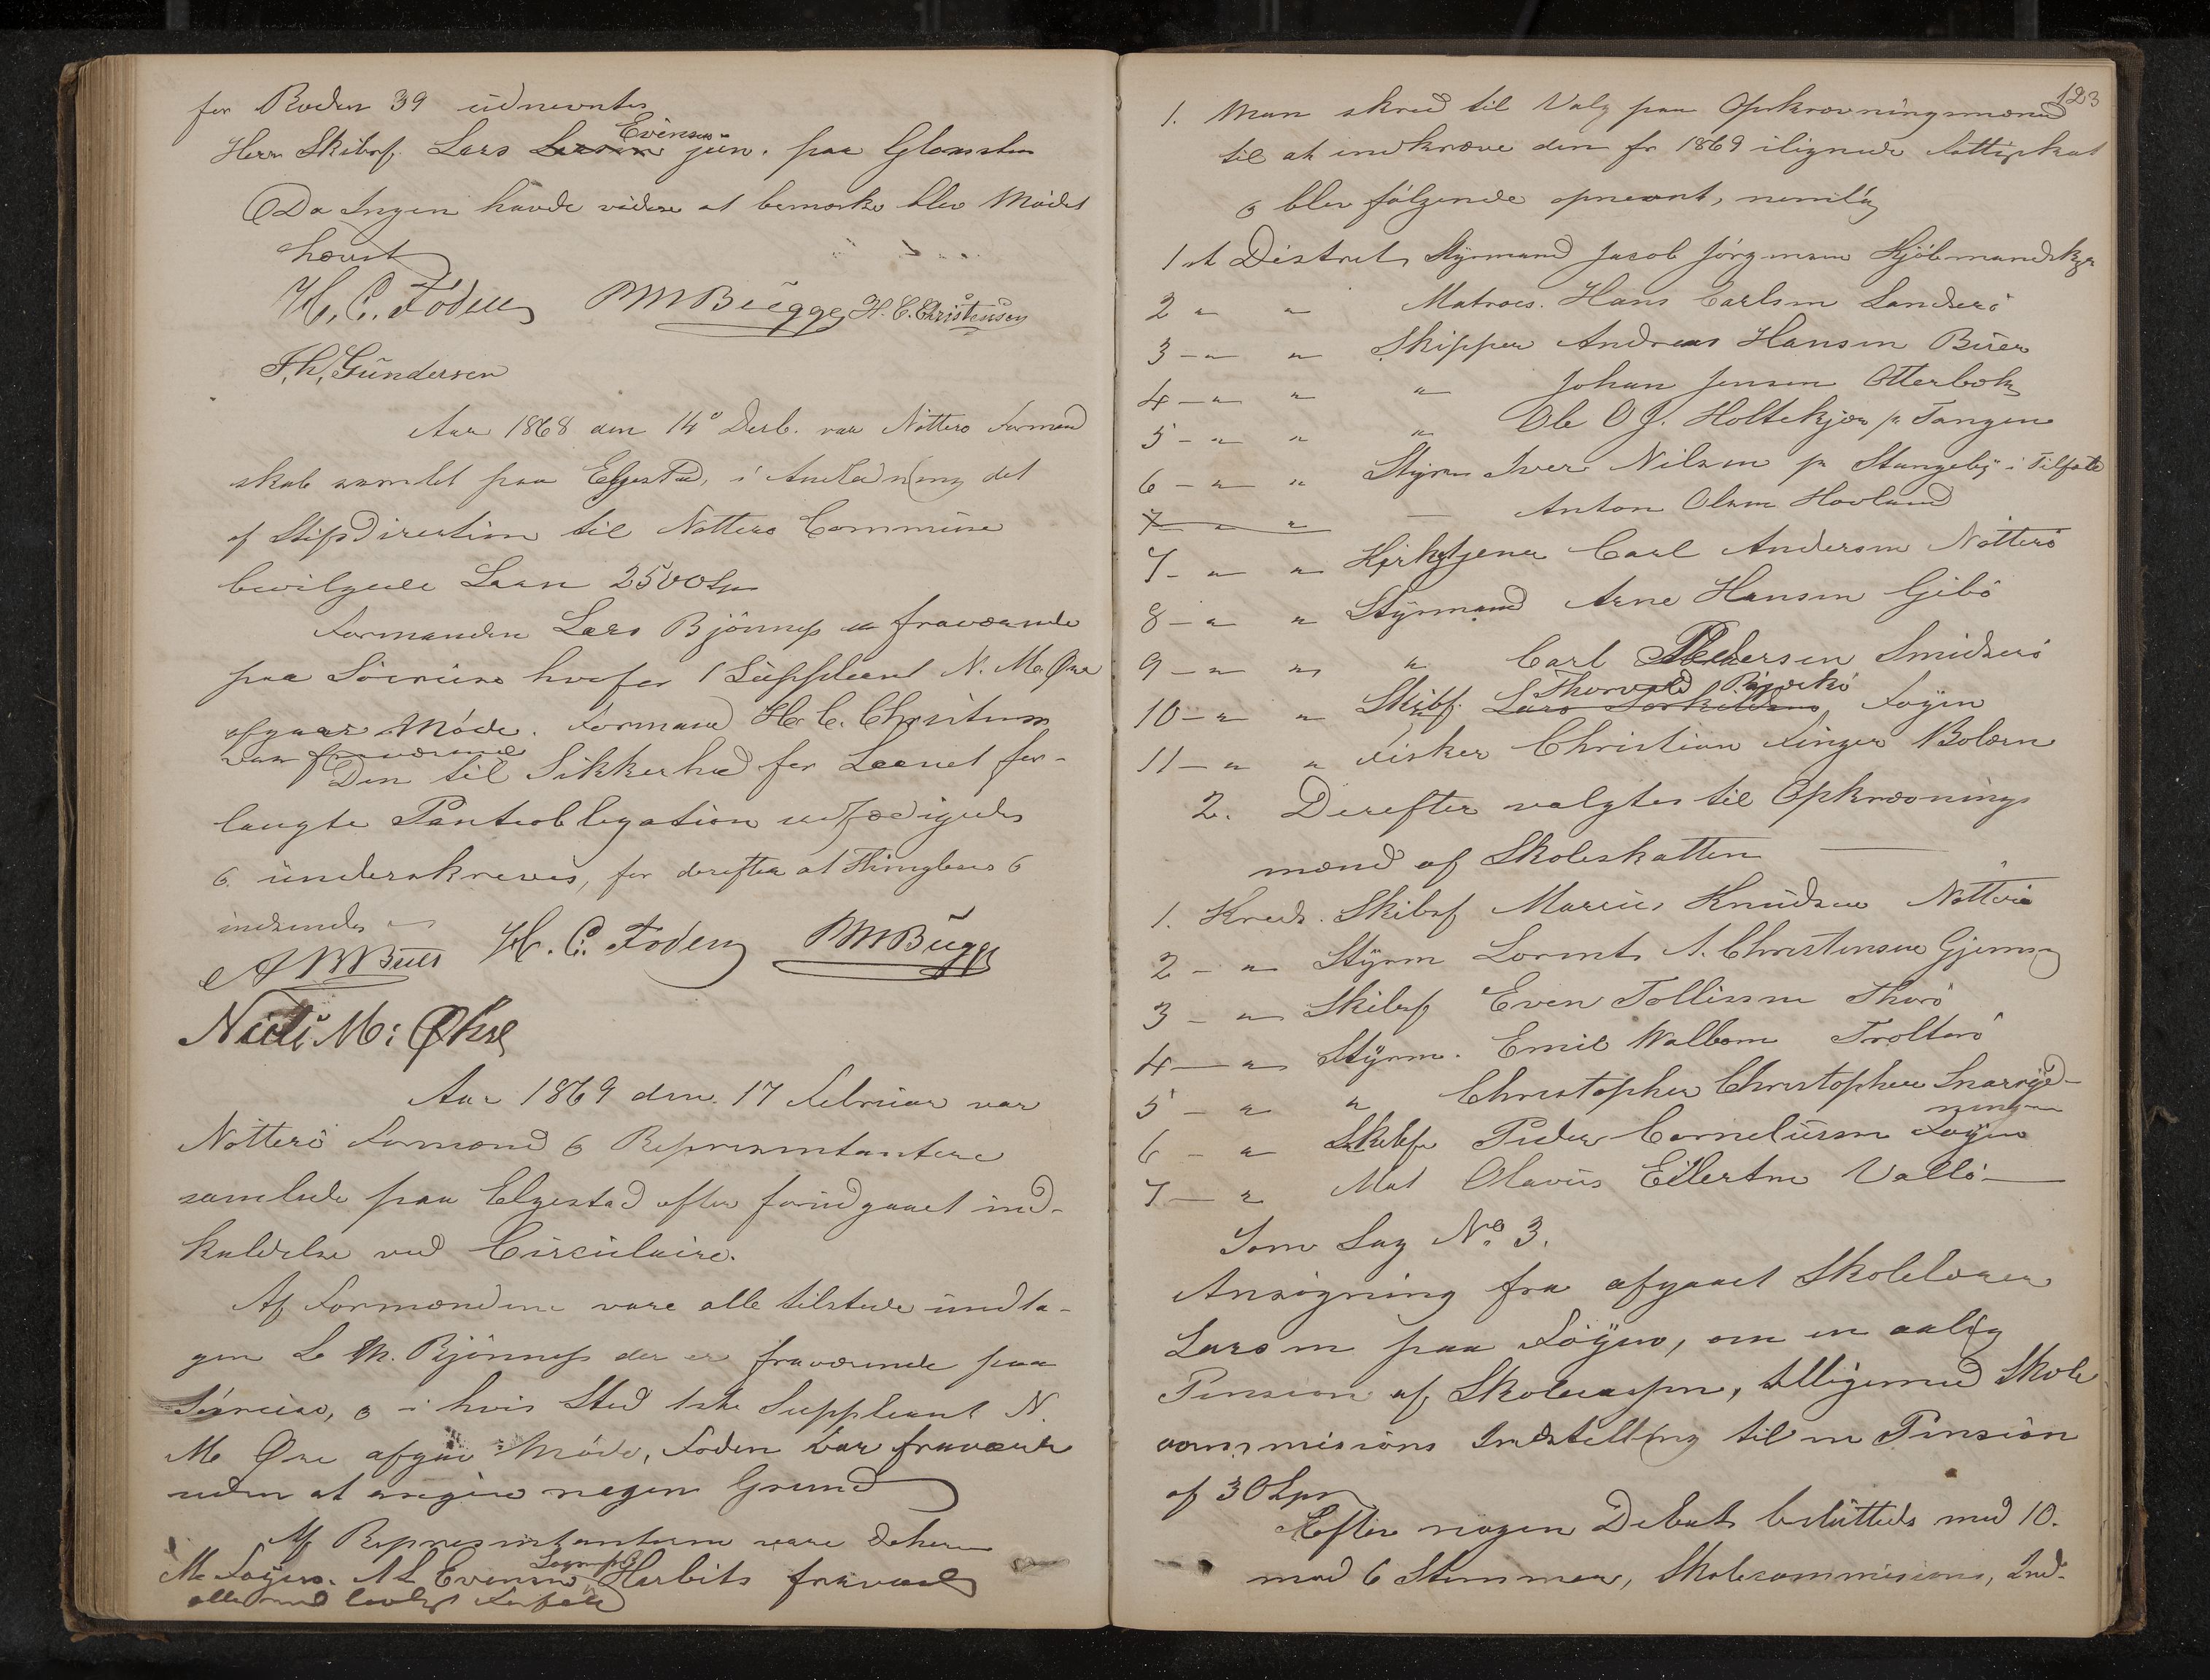 for Roden 39 udnevntes
Evensen
Herr Skibsf. Lars Larsen jün. paa Glomsten
Da Ingen havde videre at bemærke blev Mödet
hævet
H. C. Foden MMBugge H. C. Christensen
Th. Gundersen
Aar 1868 den 14de Decb. var Nötterö Formand
skab samlet paa Elgestad, i Anledning det
af Stifsdirection til Nötterö Commune
bevilgede Laan 2500 Spd
Formanden Lars Bjönnes er fraværende
paa Söreise hvorfor 1 Suppleant N. M. Øre
afgaar Möde. Formand H. C. Christensen
var fraværende
Den til Sikkerhed for Laanet for-
langte Panteobligation udfærdigedes
o. underskreves, for derefter at Thinglæses o
indsendes
A B Bull H. C. Foden MMBugge
Niels M: Øhre
Aar 1869 den 17 Februar var
Nötterö Formænd o Repræsentantere
samlede paa Elgestad efter forudgaaet ind-
kaldelse ved Circulaire.
Af Formændene vare alle tilstede undta-
gen L M. Bjönnes der er fraværende paa
Söreise, o i hvis Sted 1ste Suppleant N.
M. Øre afgav Möde, Foden var fraværende
uden at angive nogen Grund
Af Repræsentanterne vare
M Föyen. A L Evensen Herbits fraværende
alle med lovligt Forfald
123
1. Man skred til Valg paa Opkrævningsmænd
til at indkræve den for 1869 ilignede fattigskat
o blev fölgende opnevnt, nemlig
1st District Styrmand Jacob Jörgensen Kjöbmandskjær
2 " " Matros. Hans Carlsen Landserö
3 - " " Skipper Andreas Hansen Buer
4 - " " " Johan Jensen Otterbæk
5 - " " " Ole O J. Holtekjær p. Tangen
6 - " " Styrm Iver Nilsen p Stangeby i Tilfælde
7 " " — Anton Olsen Hovland
7 - " " Kirketjener Carl Andersen Nötterö
8 - " " Styrmand Arne Hansen Gibö
9 - " " " Carl Pedersen Smidserö
Thorvald Bjerkö
10 - " " Skibsf. Lars Torkildsen, Föyen
11 - " " Fisker Christian Finger Bolærn
2. Derefter valgtes til Opkrævnings
mænd af Skoleskatten —
1. Kreds. Skibsf Marius Knudsen Nötterö
2 - " Styrm Lorents A. Christensen Gjemsö
3 - " Skibsf Even Tollissen Thorö
4 - " Styrm. Emil Walbom Trolterö
5 - " " Christopher Christophersen Snarröd-
ningen
6 - " Skibsf Peder Corneliusen Föyen
7 - " Mat Olavus Eilertsen Vallö —
Som Sag No 3.
Ansögning fra afgaaet Skolelærer
Larsen paa Föyen, om en aarlig
Pension af Skolecassen, tilligemed Skole
commisions Indstelling til en Pension
af 30 Spd
Efter nogen Debat besluttedes med 10.
mod 6 Stemmer, Skolecommisions, Ind-